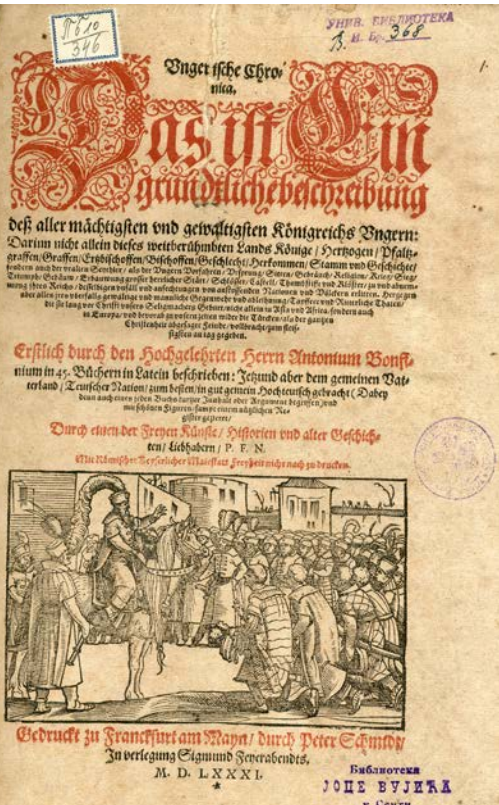 П б 10
346
УНИВ. БИБЛИОТЕКА
И. Бр. 368
1.
Vngerische Chro-
nica.
Das ist Ein
gründtliche beschreibung
deß aller mächtigsten vnd gewaltigsten Königreichs Vngern:
Darinn nicht allein dieses weitberühmbten Lands Könige / Hertzogen / Pfaltz-
graffen / Graffen / Ertzbischoffen / Bischoffen / Geschlecht / Herkommen / Stamm vnd Geschichte /
sondern auch der vralten Scythier / als der Vngern Vorfahren / Vrsprung / Sitten / Gebräuch / Religion / Krieg / Sieg /
Triumph / Gebäuw / Erbauwung grosser herrlicher Stätt / Schlösser / Castell / Thumbstifft vnd Klöster / zu vnd abnem-
mung ihres Reichs / desselbigen vnfäll vnd anfechtungen von anstossenden Nationen vnd Völckern erlitten. Hergegen
aber allen jren vberfalls gewaltige vnd mannliche Gegenwehr vnd ableihnung / Tapffere vnd Ritterliche Thaten /
die sie lang vor Christi vnsers Seligmachers Geburt / nicht allein in Asia vnd Africa / sondern auch
in Europa / vnd bevorab zu vnsern zeiten wider die Türcken / als der gantzen
Christenheit abgesagte Feinde / vollbracht / zum fleis-
sigsten an tag gegeben.
Erstlich durch den Hochgelehrten Herrn Antonium Bonfi-
nium in 45. Büchern in Latein beschrieben: Jetzund aber dem gemeinen Vat-
terland / Teutscher Nation / zum besten / in gut gemein Hochteutsch gebracht (Dabey
denn auch eines jeden Buchs kurtzer Innhalt oder Argument begriffen) vnd
mit schönen Figuren / sampt einem nützlichen Re-
gister gezieret /
Durch einen der Freyen Künste / Historien vnd alter Geschich-
ten / Liebhabern / P. F. N.
Mit Römischer Keyserlicher Maiestatt Freyheit nicht nach zu drucken.
Gedruckt zu Franckfurt am Mayn / durch Peter Schmidt /
In verlegung Sigmund Feyerabendts.
M. D. LXXXI.
Библиотека
ЈОЦЕ ВУЈИЋА
у Сенти